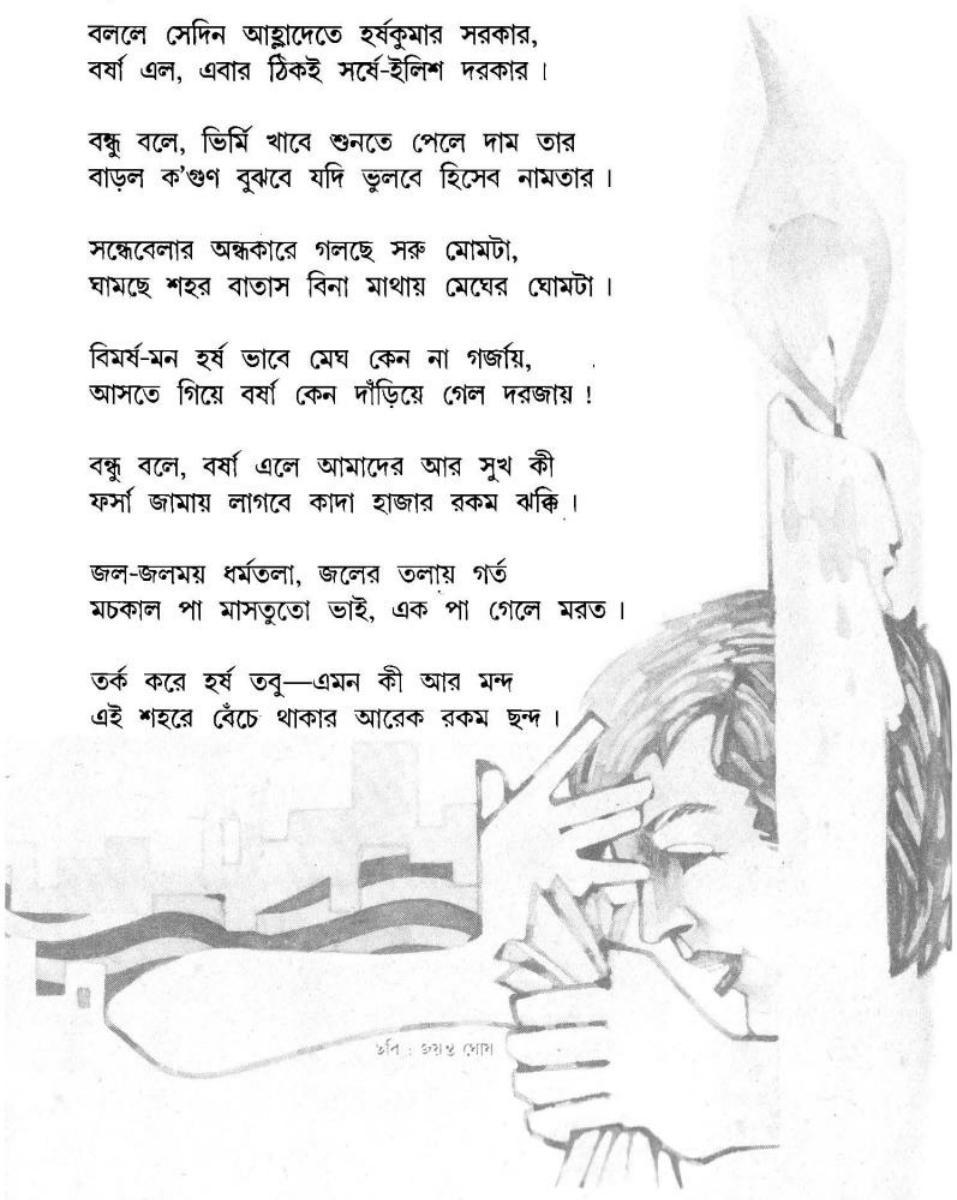 বললে সেদিন আহ্লাদেতে হর্ষকুমার সরকার,
বর্ষা এল, এবার ঠিকই সর্ষে-ইলিশ দরকার ।
বন্ধু বলে, ভির্মি খাবে শুনতে পেলে দাম তার
বাড়ল ক'গুণ বুঝবে যদি ভুলবে হিসেব নামতার ।
সন্ধেবেলার অন্ধকারে গলছে সরু মোমটা,
ঘামছে শহর বাতাস বিনা মাথায় মেঘের ঘোমটা ।
বিমর্ষ-মন হর্ষ ভাবে মেঘ কেন না গর্জায়,
আসতে গিয়ে বর্ষা কেন দাঁড়িয়ে গেল দরজায় !
বন্ধু বলে, বর্ষা এলে আমাদের আর সুখ কী
ফর্সা জামায় লাগবে কাদা হাজার রকম ঝক্কি ।
জল-জলময় ধর্মতলা, জলের তলায় গর্ত
মচকাল পা মাসতুতো ভাই, এক পা গেলে মরত ।
তর্ক করে হর্ষ তবু—এমন কী আর মন্দ
এই শহরে বেঁচে থাকার আরেক রকম ছন্দ ।
ছবি : জয়ন্ত ঘোষ